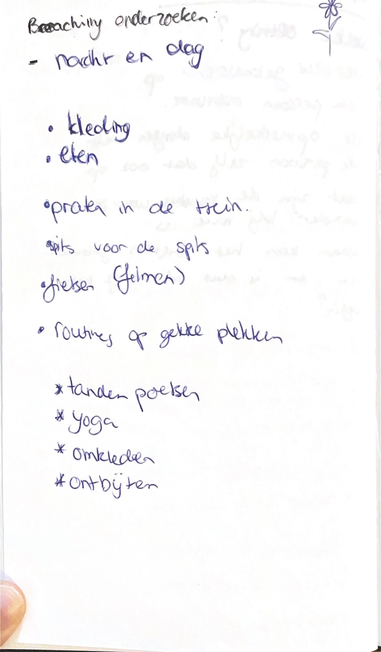 Breaching onderzoeken:
- nacht en dag
• kleding
• eten
• praten in de trein.
• spits voor de spits
• fietsen (filmen)
• routines op gekke plekken
* tanden poetsen
* yoga
* omkleden
* ontbijten